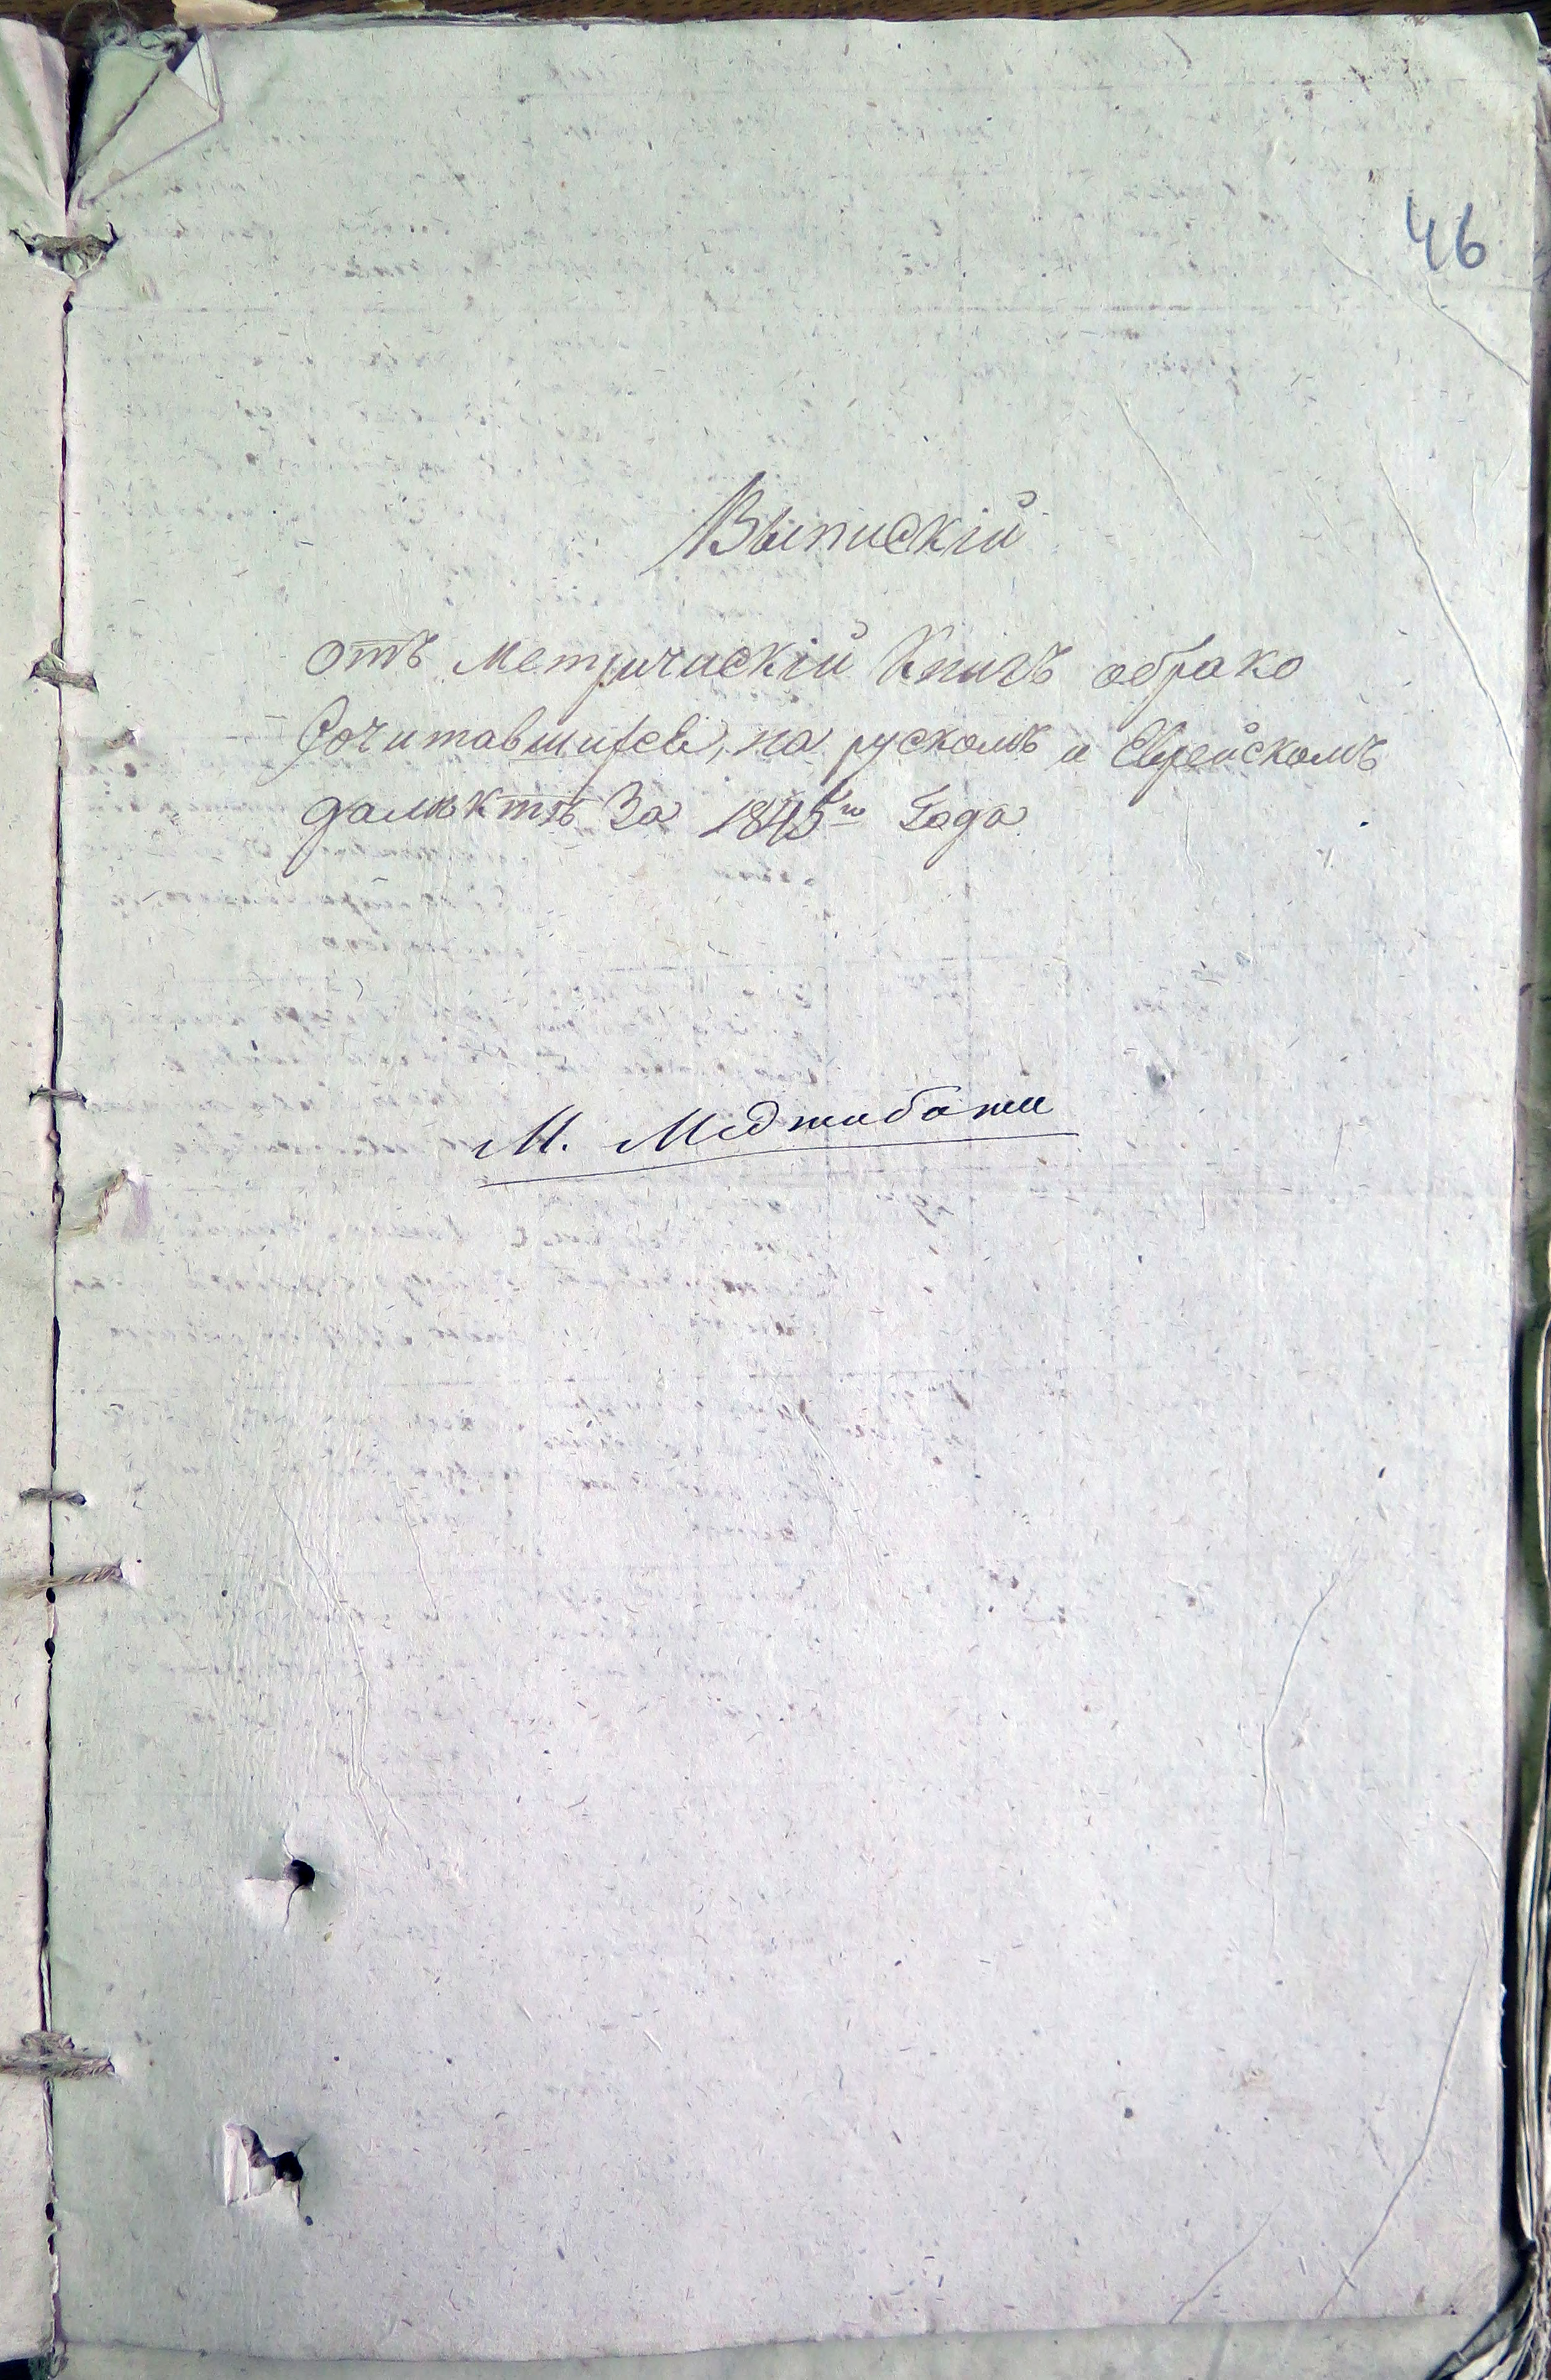 46
Выпискій
отъ Метричискій Книгъ обрако
Сочитавшихсе, на рускомъ и Еврейскомъ
далѣктѣ За 1845го Года
М. Меджибожи